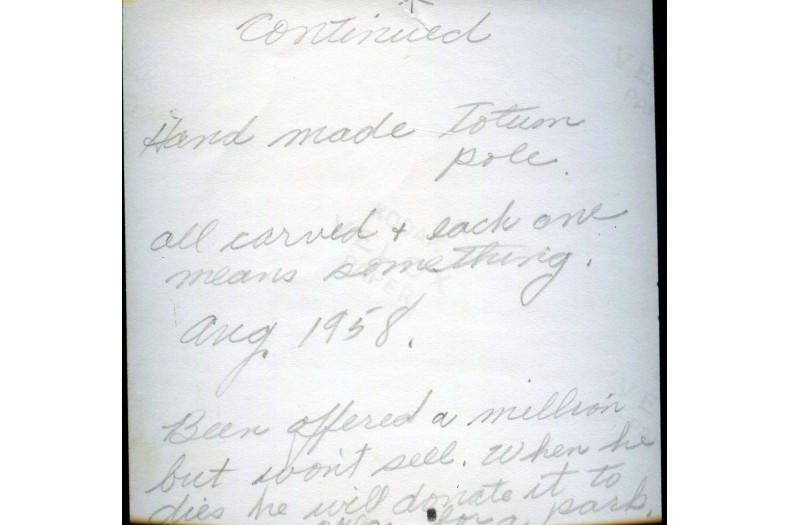 Continued
Hand made Totum
pole.
all carved + each one
means something.
Aug 1958.
Been offered a million
but won't sell. When he
dies he will donate it to
for a park.
KODAK
VELOX
PAPER